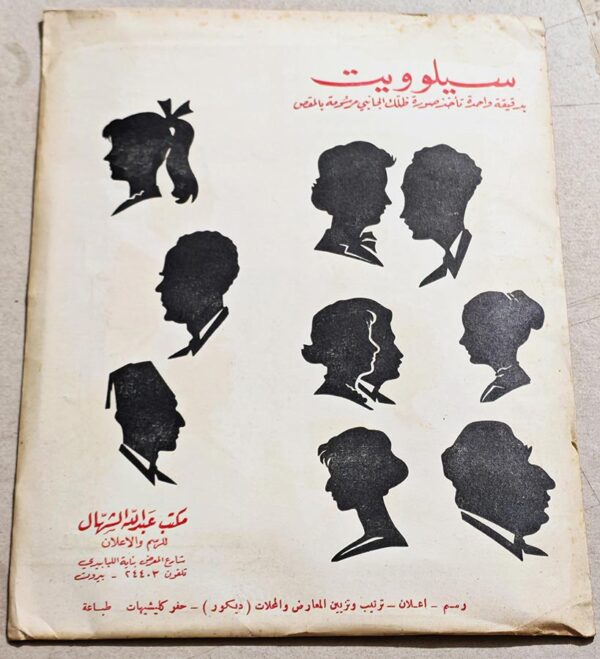 سيلوويت
بدقيقة واحدة تأخذ صورة ظلك الجانبي مرسومة بالمقص
مكتب عبدالله الشهال
للرسم والاعلان
شارع المعرض بناية اللبابيدي
تلفون ٢٤٤٠٣ - بيروت
رسم - اعلان - ترتيب وتزيين المعارض والمحلات (ديكور) - حفر كليشيهات طباعة